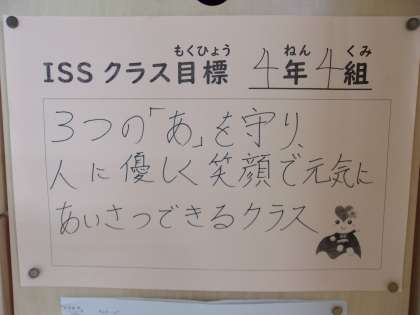 もくひょう ねん くみ
ISSクラス目標 4年4組
3つの「あ」を守り、
人に優しく笑顔で元気に
あいさつできるクラス